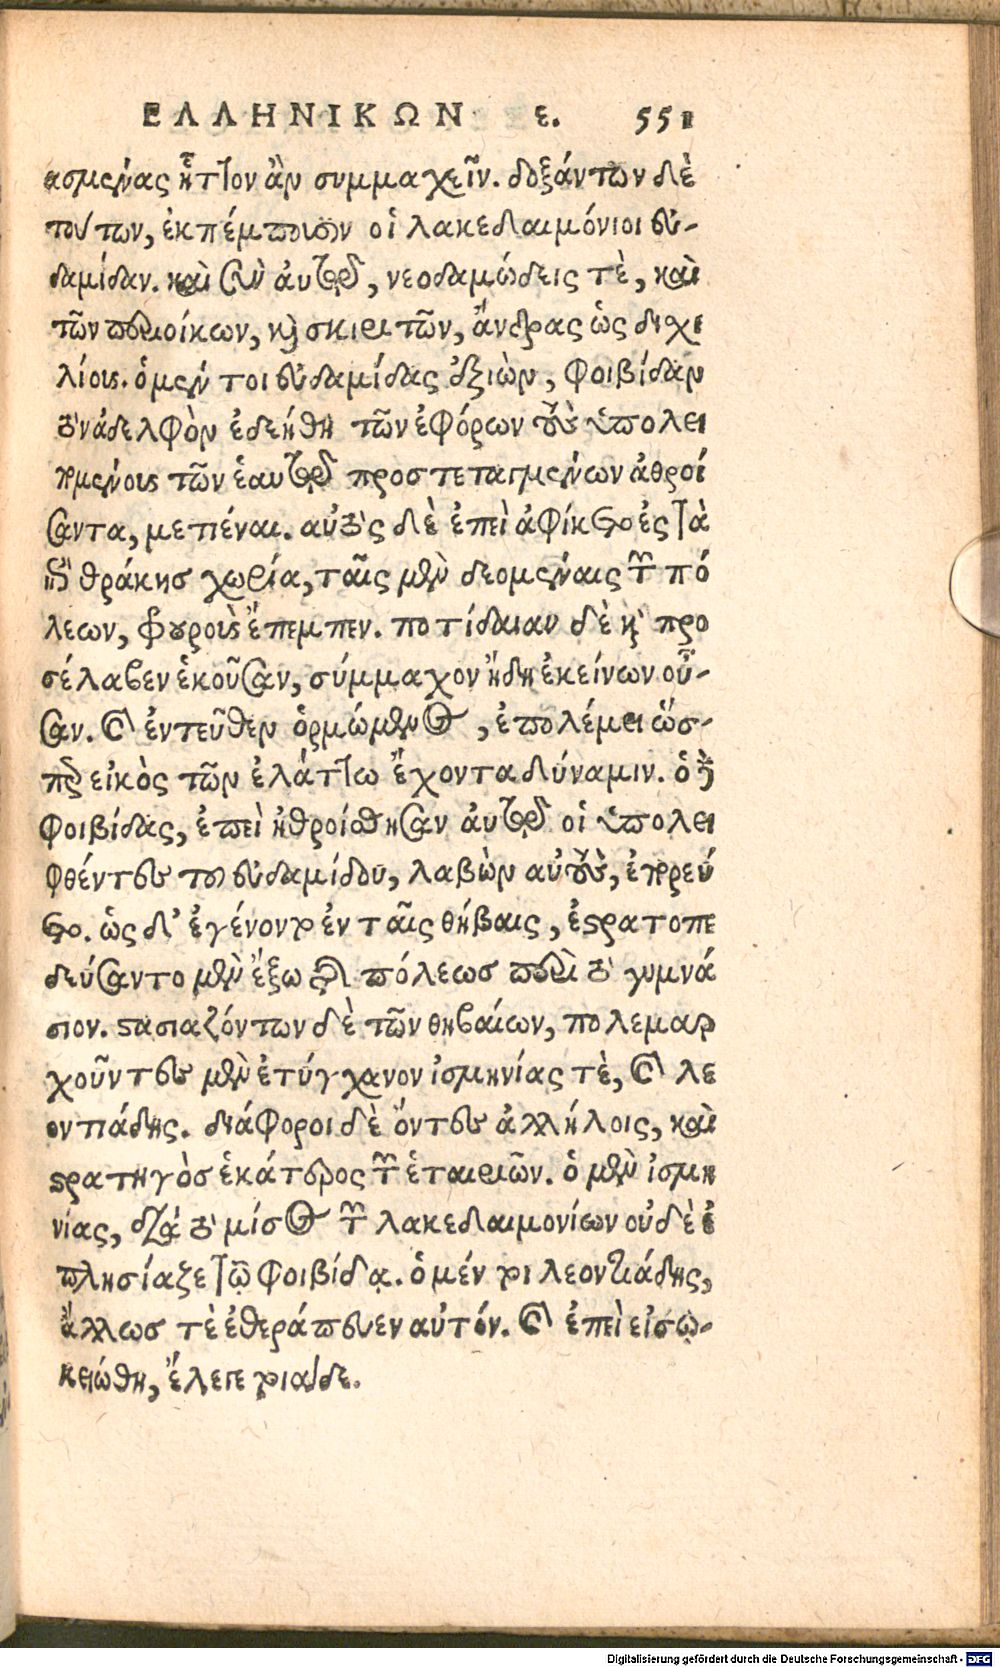 ΕΛΛΗΝΙΚΩΝ ε. 551
ασμένας ἧττον ἂν συμμαχεῖν. δοξάντων δὲ
τούτων, ἐκπέμπουσιν οἱ λακεδαιμόνιοι εὐ-
δαμίδαν. καὶ σὺν ἀυτῷ, νεοδαμώδεις τὲ, καὶ
τῶν περιοίκων, καὶ σκιριτῶν, ἄνδρας ὡς διχι
λίους. ὁ μέν τοι εὐδαμίδας ἐξιὼν, φοιβίδαν
τὸν ἀδελφὸν ἐδεήθη τῶν ἐφόρων τοὺς ὑπολει
πομένους τῶν ἑαυτῷ προστεταγμένων ἀθροί
σαντα, μετιέναι. αὐτὸς δὲ ἐπεὶ ἀφίκετο ἐς τὰ
ἐπὶ θράκης χωρία, ταῖς μὲν δεομέναις τῶν πό
λεων, φρουροὺς ἔπεμπεν. ποτίδαιαν δὲ καὶ προ
σέλαβεν ἑκοῦσαν, σύμμαχον ἤδη ἐκείνων οὖ-
σαν. καὶ ἐντεῦθεν ὁρμώμενος, ἐπολέμει ὥσ-
περ εἰκὸς τῶν ἐλάττω ἔχοντα δύναμιν. ὁ δὲ
φοιβίδας, ἐπεὶ ἠθροίσθησαν ἀυτῷ οἱ ὑπολει
φθέντες τοῦ εὐδαμίδου, λαβὼν αὐτοὺς, ἐπορεύ
ετο. ὡς δ' ἐγένοντο ἐν ταῖς θήβαις, ἐστρατοπε
δεύσαντο μὲν ἔξω τῆς πόλεως περὶ τὸ γυμνά
σιον. στασιαζόντων δὲ τῶν θηβαίων, πολεμαρ
χοῦντες μὲν ἐτύγχανον ἰσμηνίας τὲ, καὶ λε
οντιάδης. διάφοροι δὲ ὄντες ἀλλήλοις, καὶ
στρατηγὸς ἑκάτερος τῶν ἑταιριῶν. ὁ μὲν ἰσμη
νίας, διὰ τὸ μίσος τῶν λακεδαιμονίων οὐδὲ ἐ
πλησίαζε τῷ φοιβίδᾳ. ὁ μέν τοι λεοντιάδης,
ἄλλως τὲ ἐθεράπευεν αὐτόν. καὶ ἐπεὶ εἰσῳ-
κειώθη, ἔλεγε τοιάδε.
Digitalisierung gefördert durch die Deutsche Forschungsgemeinschaft - DFG